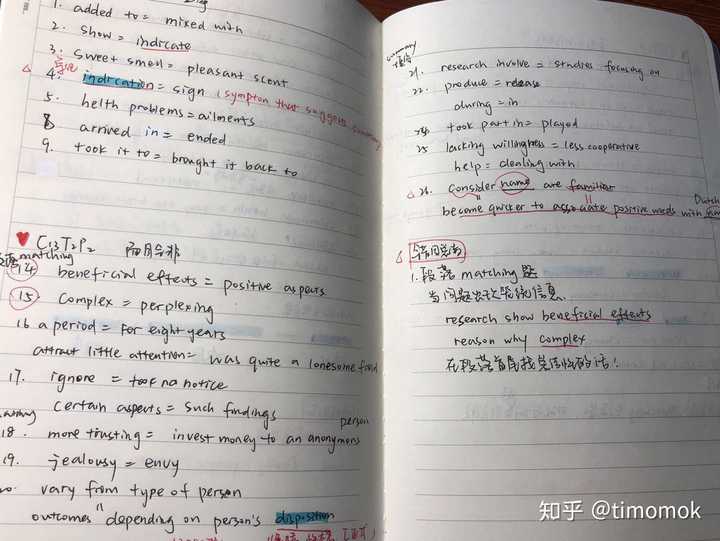 1. added to = mixed with
2. show = indicate
3. sweet smell = pleasant scent
4. indication = sign (sympton that suggests
5. helth problems = ailments
8 arrived in = ended
9. took it to = brought it back to
C13T2P2
matching
14 beneficial effects = positive aspects
15 complex = perplexing
16 a period = for eight years
attract little attention = was quite a lonesome
17. ignore = took no notice
certain aspects = such findings
18. more trusting = invest money to an anonymous person
19. jealousy = envy
20. vary from type of person
outcomes depending on person's disposition
summary
21. research involve = studies focusing on
22. produce = release
during = in
24 took part in = played
25 lacking willingness = less cooperative
help = dealing with
26. consider name are familiar
become quicker to associate positive words with Dutch
1. 段落 matching 题
research show beneficial effects
reason why complex
知乎 @timomok